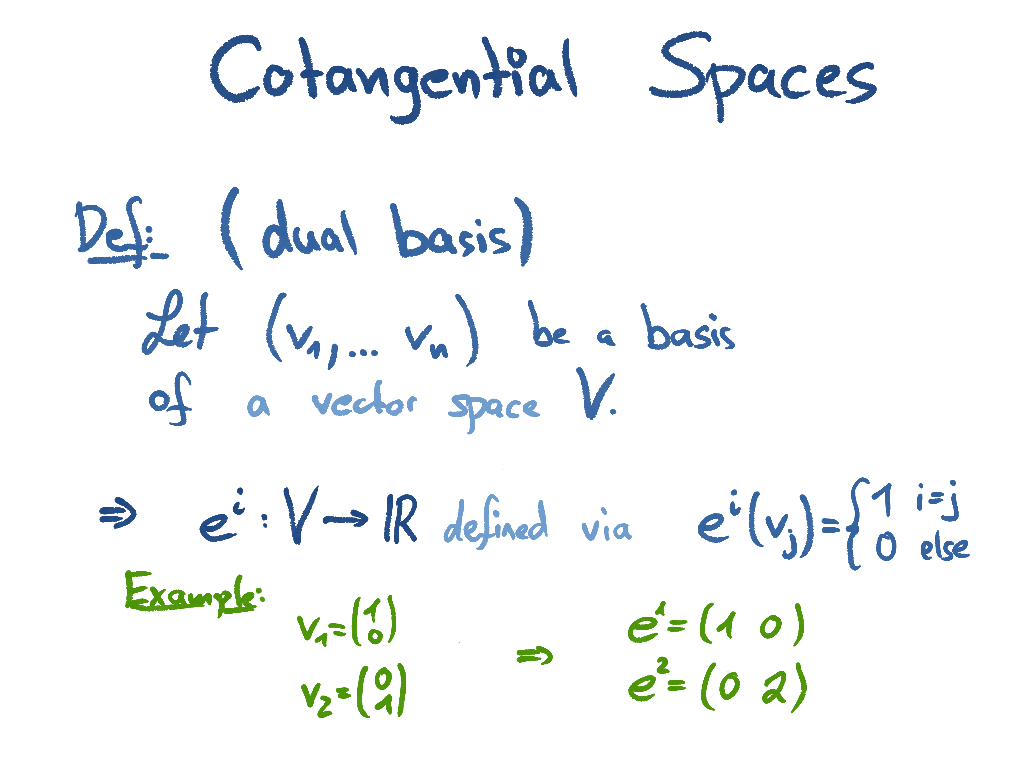 Cotangential Spaces
Def: (dual basis)
Let (v₁,... vₙ) be a basis
of a vector space V.
⇒ eⁱ : V → ℝ defined via eⁱ(vⱼ) = { 1 i=j
0 else
Example:
v₁ = (1 0) ⇒ e¹ = (1 0)
v₂ = (0 1) e² = (0 2)